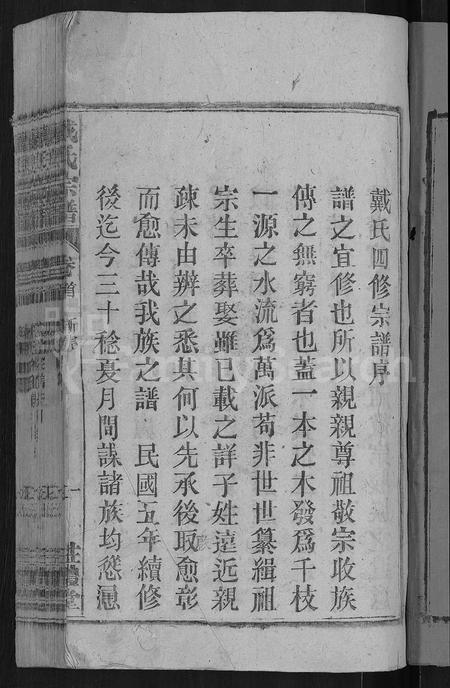 戴氏四修宗譜序
譜之宜修也所以親親尊祖敬宗收族
傳之無窮者也蓋一本之木發爲千枝
一源之水流爲萬派苟非世世纂緝祖
宗生卒葬娶雖已載之詳子姓遠近親
疎未由辨之悉其何以先承後取愈彰
而愈傳哉我族之譜 民國五年續修
後迄今三十稔夏月間諜諸族均慫慂
戴氏宗譜 卷首 新序 一 禮堂
FamilySearch